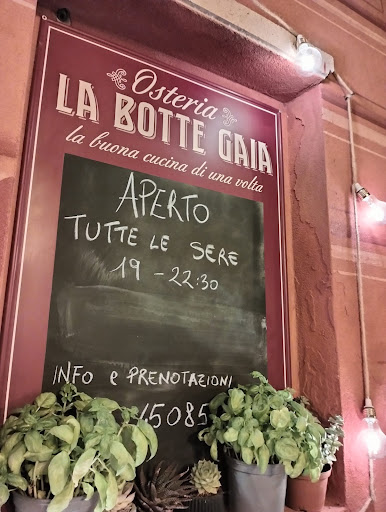 Osteria
LA BOTTE GAIA
la buona cucina di una volta
APERTO
TUTTE LE SERE
19 - 22:30
INFO e PRENOTAZIONI
45085